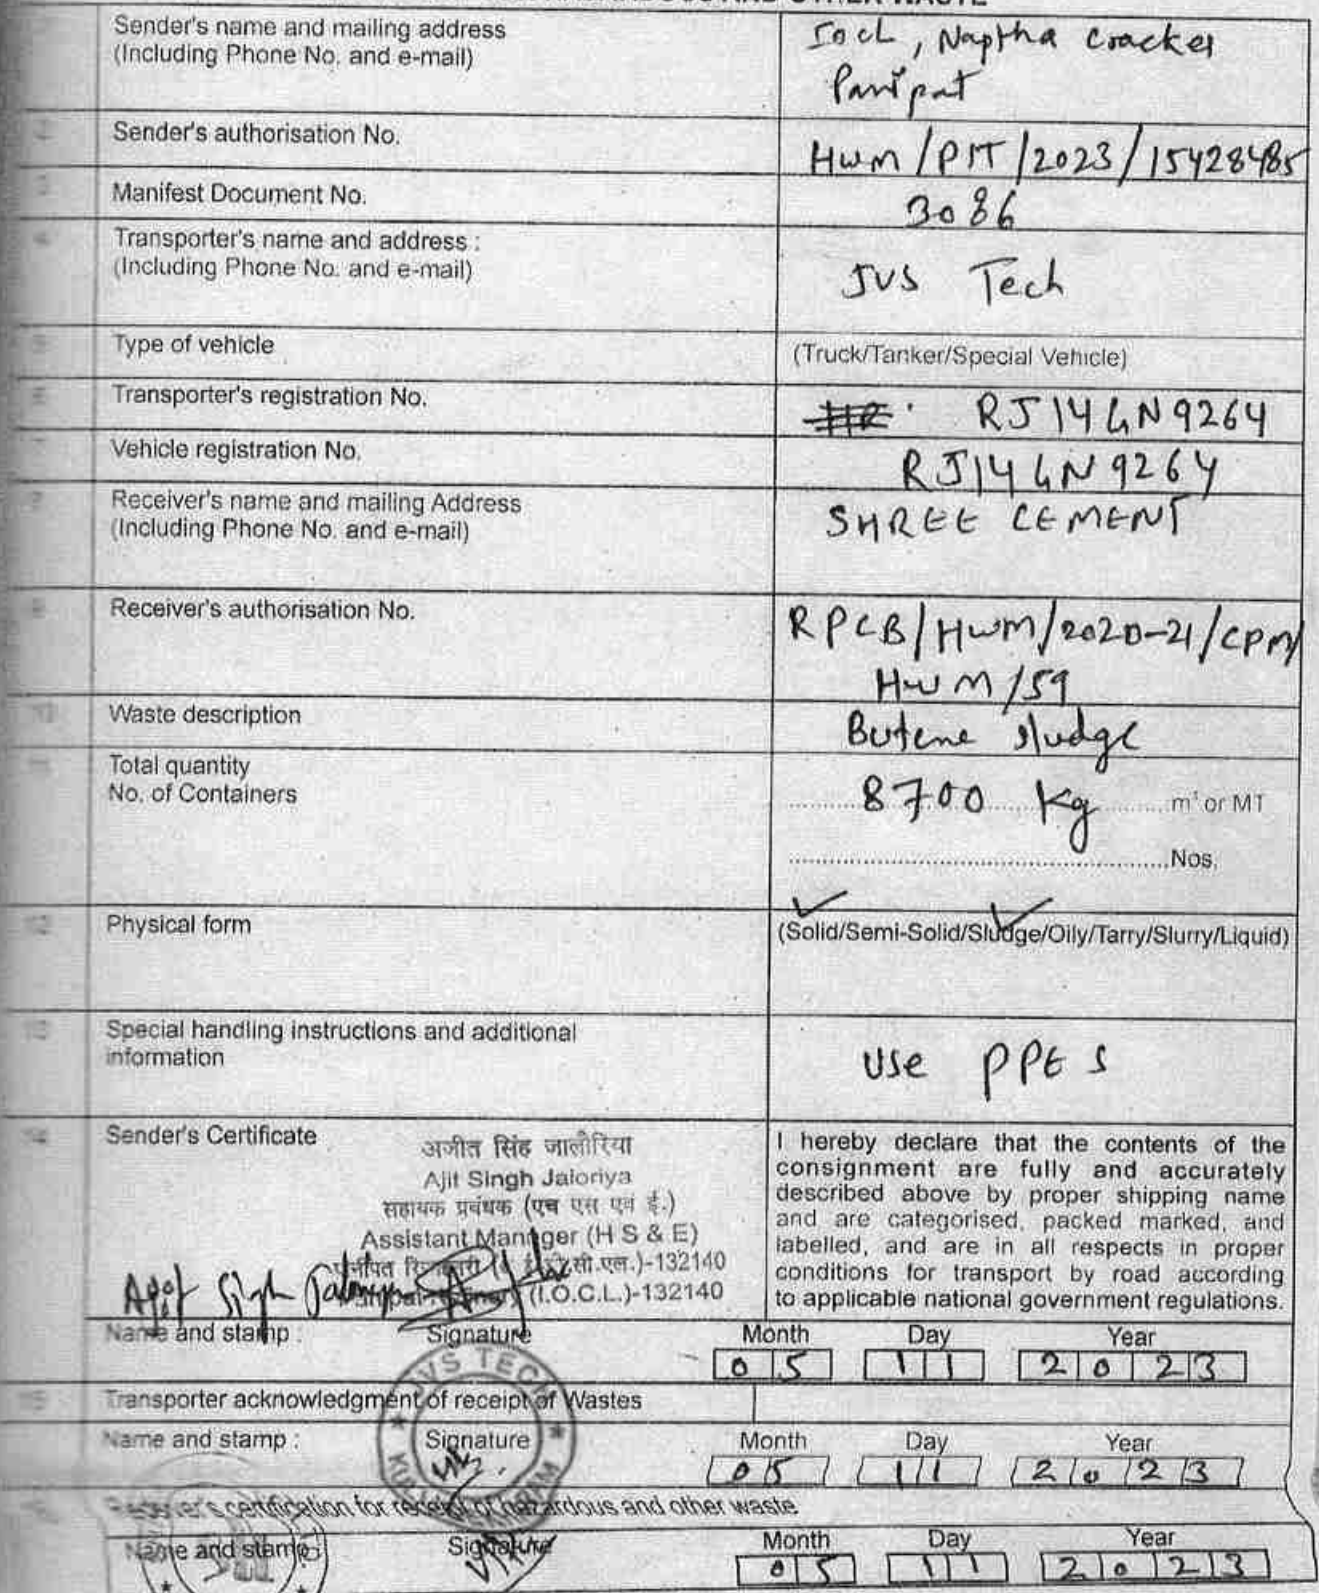 OTHER WASTE
Sender's name and mailing address
(Including Phone No. and e-mail)
Iocl, Naptha cracker
Panipat
Sender's authorisation No.
HWM/PIT/2023/15428485
3
Manifest Document No.
3086
4
Transporter's name and address :
(Including Phone No. and e-mail)
JVS Tech
Type of vehicle
(Truck/Tanker/Special Vehicle)
Transporter's registration No.
RJ14GN9264
Vehicle registration No.
RJ14GN9264
Receiver's name and mailing Address
(Including Phone No. and e-mail)
SHREE CEMENT
Receiver's authorisation No.
RPCB/HWM/2020-21/CPM/
HWM/59
Waste description
Butene sludge
Total quantity
No. of Containers
8700 Kg m³ or MT
Nos.
12
Physical form
(Solid/Semi-Solid/Sludge/Oily/Tarry/Slurry/Liquid)
13
Special handling instructions and additional
information
Use PPE s
14
Sender's Certificate
अजीत सिंह जालोरिया
Ajit Singh Jaloriya
सहायक प्रबंधक (एच एस एवं ई.)
Assistant Manager (H S & E)
सी.एल.)-132140
(I.O.C.L.)-132140
Ajit Singh Jaloriya
I hereby declare that the contents of the
consignment are fully and accurately
described above by proper shipping name
and are categorised, packed marked, and
labelled, and are in all respects in proper
conditions for transport by road according
to applicable national government regulations.
Name and stamp : Signature Month Day Year
05 11 2023
15
Transporter acknowledgment of receipt of Wastes
JVS TECH
Name and stamp : Signature Month Day Year
05 11 2023
Receiver's certification for receipt of hazardous and other waste
Name and stamp : Signature Month Day Year
05 11 2023